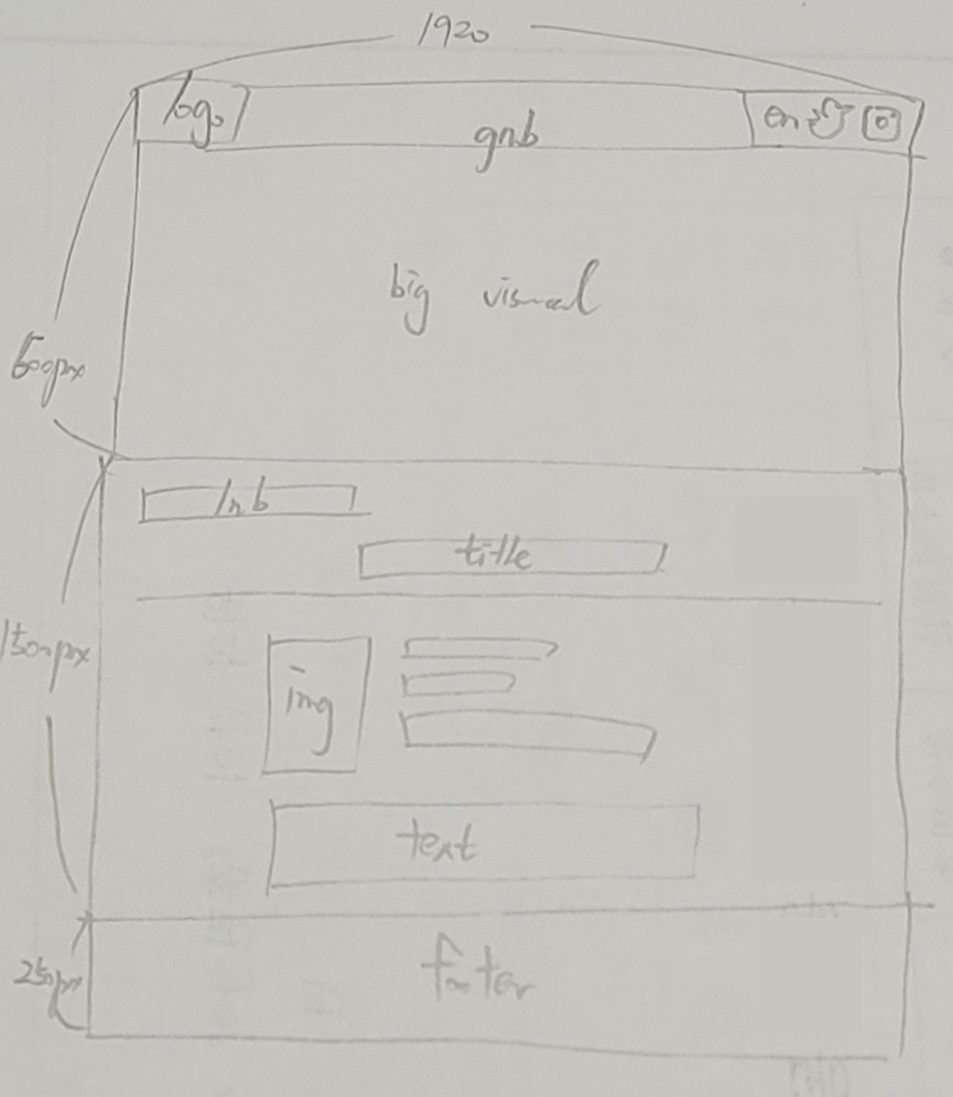 1920
logo
gnb
en
big visual
500px
lnb
title
1500px
img
text
footer
250px